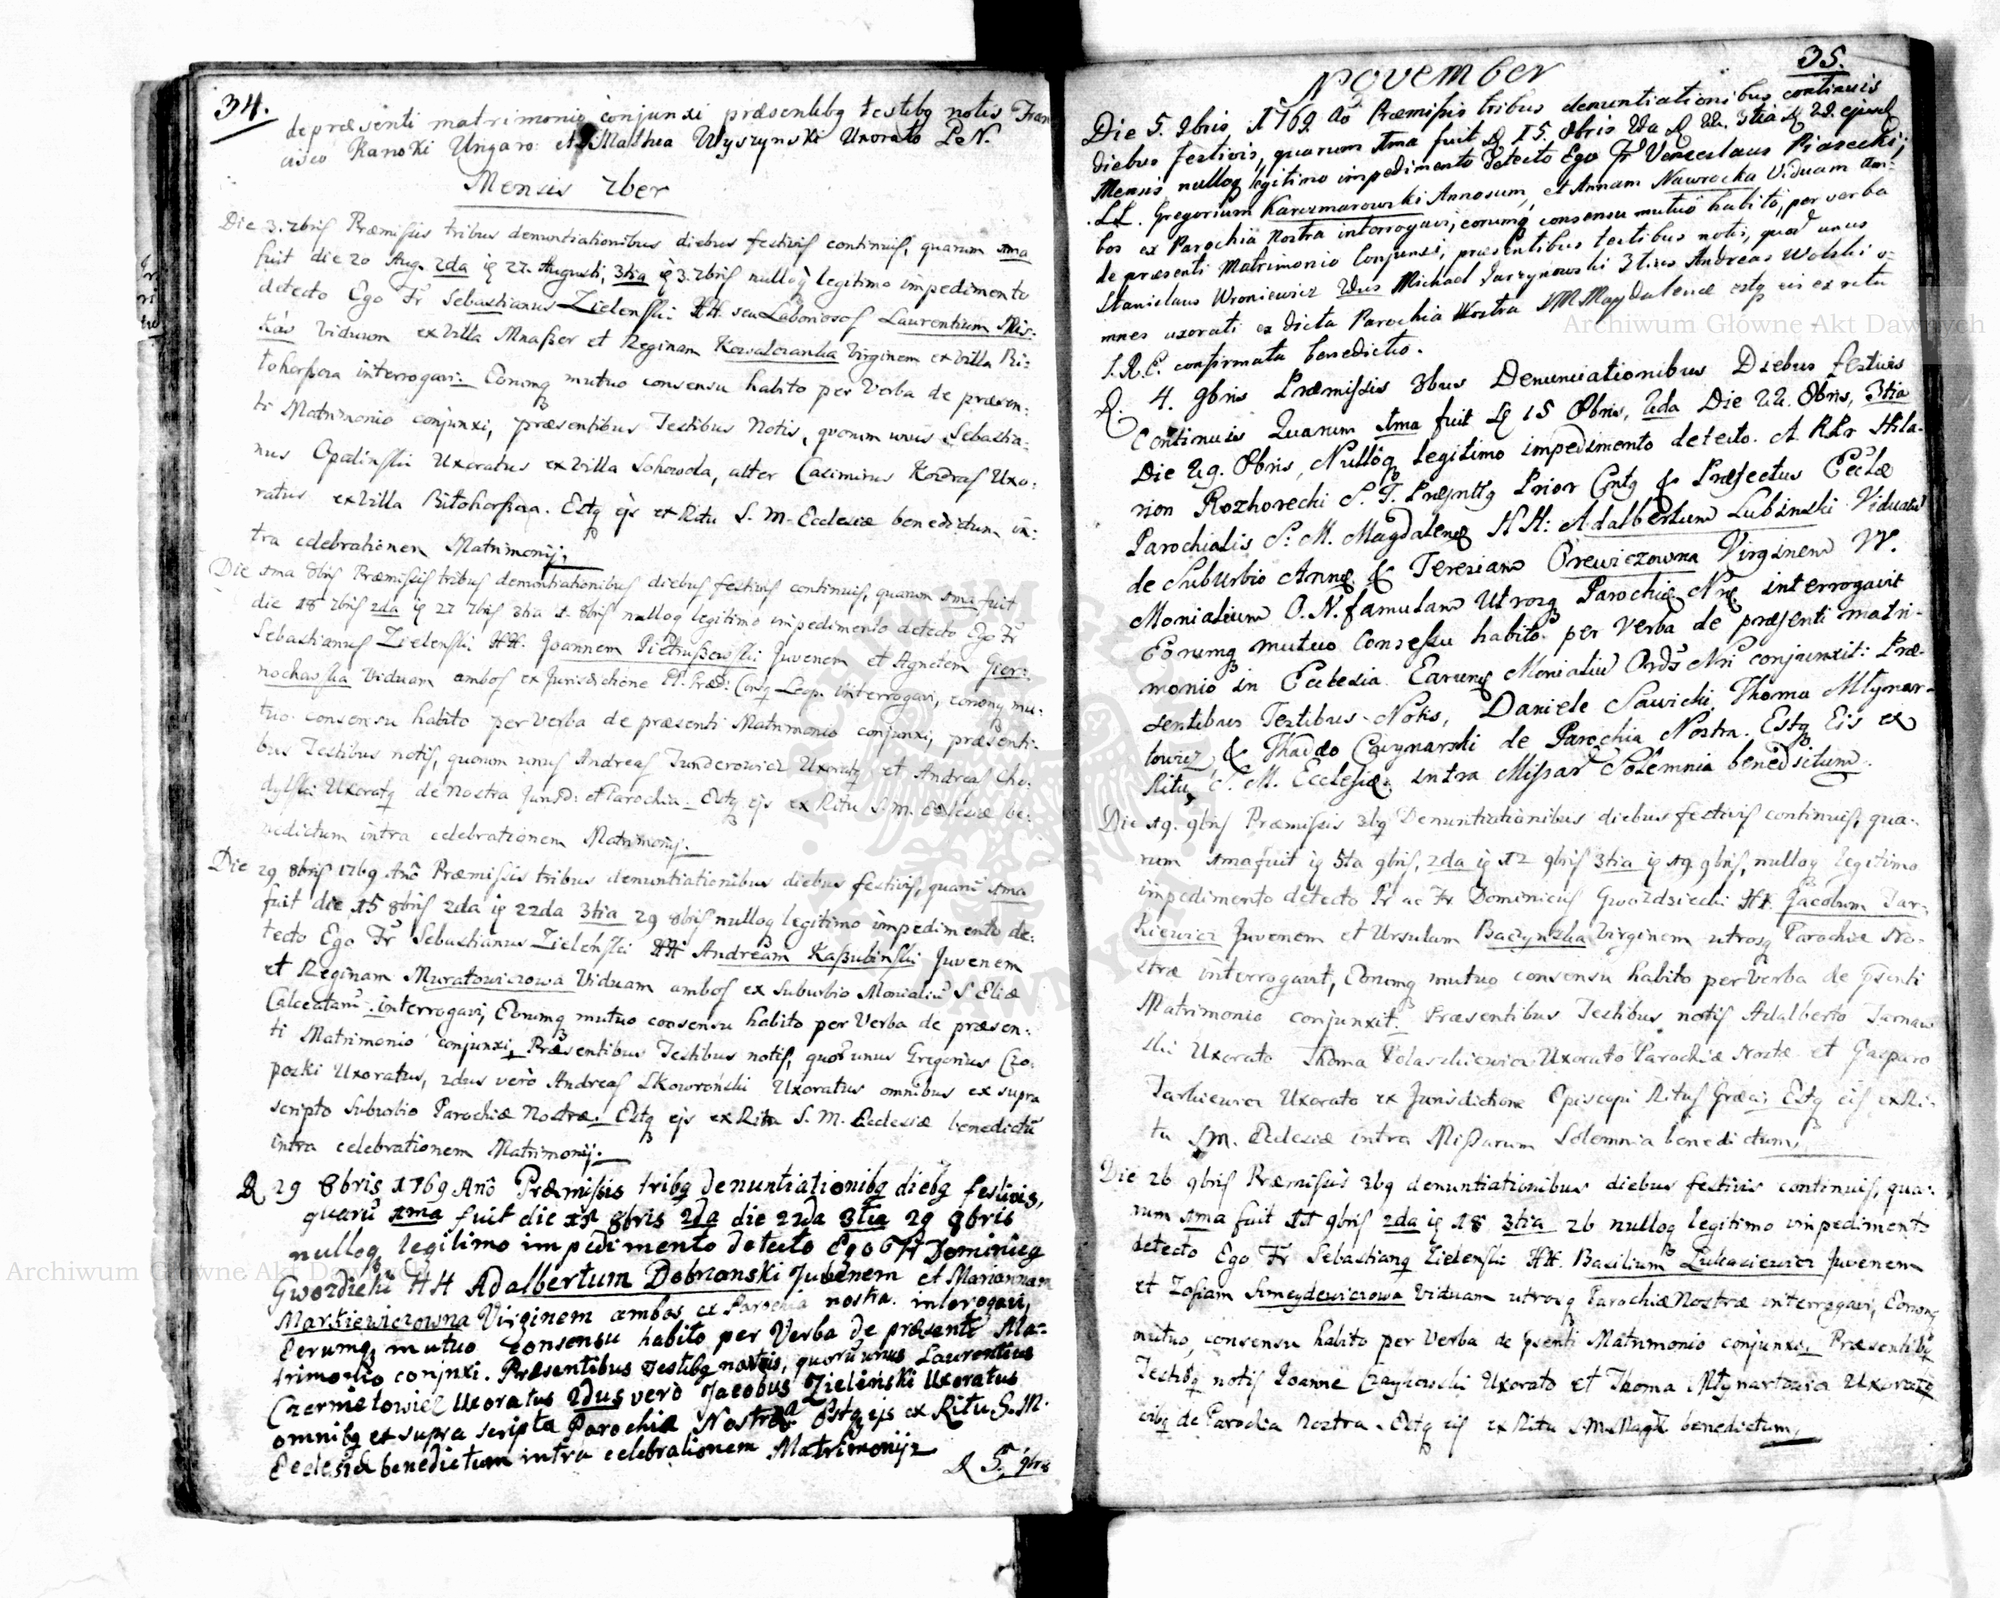 34.
de præsenti matrimonio conjunxi præsentibq testibq notis Fran
cisco Kanski Ungaro et Matthea Wyszynski Uxorato P. N.
Mensis 7ber
Die 3. 7bris Præmissis tribus denuntiationibus diebus festivis continuis, quarum 1ma
fuit die 20 Aug. 2da in 27. Augusti, 3tia in 3. 7bris nulloq legitimo impedimento
detecto Ego Fr Sebastianus Zielenski HH. seu Laboriosos Laurentium
viduum ex Villa et Reginam Kowalczanka Virginem ex Villa Bi:
tohorszcza interrogavi: Eorumq mutuo consensu habito per Verba de præsen:
ti Matrimonio conjunxi, præsentibus Testibus Notis, quorum unus Sebastia:
nus Opalinski Uxoratus ex Villa alter Casimirus Uxo:
ratus ex Villa Bitohorszcza. Estq ejs ex Ritu S. M. Ecclesiæ benedictum in:
tra celebrationem Matrimonij.
Die 1ma 8bris Præmissis tribus denuntiationibus diebus festivis continuis, quarum 1ma fuit
die 18 7bris 2da in 27 7bris 3tia 1. 8bris nulloq legitimo impedimento detecto Ego Fr
Sebastianus Zielenski HH. Joannem Pietruszewski Juvenem et Agnetem Gier:
nochaska Viduam ambos ex Jurisdictione PP. Præd: Conq Leop. interrogavi, eorumq mu:
tuo consensu habito per Verba de præsenti Matrimonio conjunxi, præsenti:
bus Testibus notis, quorum unus Andreas Tunderowicz Uxoratq et Andreas Cho:
dylski Uxoratq de Nostra Jurisd: et Parochia. Estq ejs ex Ritu S. M. Ecclesiæ be:
nedictum intra celebrationem Matrimonij.
Die 29 8bris 1769 Anô Præmissis tribus denuntiationibus diebus festivis, quarû 1ma
fuit die 15 8bris 2da in 22da 3tia 29 8bris nulloq legitimo impedimento de:
tecto Ego Fr Sebastianus Zielenski HH Andream Kaszubinski Juvenem
et Reginam Muratowiczowa Viduam ambos ex Suburbio Monialiû S Eliæ
Calceatarû. interrogavi, Eorumq mutuo consensu habito per Verba de præsen:
ti Matrimonio conjunxi, Præsentibus Testibus notis, quor unus Gregorius Czo:
pocki Uxoratus, 2dus verò Andreas Skowroński Uxoratus omnibus ex supra
scripto Suburbio Parochiæ Nostræ. Estq ejs ex Ritu S. M. Ecclesiæ benedictû
intra celebrationem Matrimonij.
D 29 8bris 1769 Anô Præmissis tribq denuntiationibq diebq festivis,
quarû 1ma fuit die 15 8bris 2da die 22da 3tia 29 8bris
nulloq legitimo impedimento detecto Ego Fr Dominicq
Gwozdicki HH Adalbertum Dobrzonski Juvenem et Mariannam
Markiewiczowna Virginem ambos ex Parochia nostra. interogavi,
Eerumq mutuo consensu habito per Verba de præsenti Ma=
trimonio conjnxi. Præsentibus testibq nostris, quorû unus Laurentius
Czermetowicz Uxoratus 2dus verò Jacobus Zieliński Uxoratus
omnibq ex supra scripta Parochia Nostra Estq ejs ex Ritu S. M.
Ecclesiæ benedictum intra celebrationem Matrimonij
D 5. 9bris
35.
November
Die 5. 9bris, 1769. Aô Præmissis tribus denuntiationibus continuis
diebus festivis, quarum 1ma fuit D 15. 8bris 2da D 22. 3tia D 29. ejusd
Mensis nulloq legitimo impedimento detecto Ego Fr Venceslaus Piasecki;
LL. Gregorium Karczmarowski Annosum, et Annam Nawrocka Viduam am:
bos ex Parochia Nostra interrogavi, eorumq consensu mutuô habitô, per verba
de præsenti Matrimonio Conjunxi, præsentibus testibus notis, quor unus
Stanislaus Wroniewicz 2dus Michael Jarzynowski 3tius Andreas Wolski o:
mnes uxorati ex dicta Parochia Nostra S M Magdalenæ estq eis ex ritu
S. R. E. confirmata benedictio.
D. 4. 9bris Præmissis 3bus Denunciationibus Diebus festivis
Continuis Quarum 1ma fuit D 15 8bris, 2da Die 22. 8bris, 3tia
Die 29. 8bris, Nulloq legitimo impedimento detecto. A. R. Pr Hila-
rion Rozhorecki S. T. Præsnttq Prior Cntq & Præfectus Ecclæ
Parochialis S: M. Magdalenæ HH: Adalbertum Lubinski Viduatû
de Suburbio Annæ & Teresiam Orewiczowna Virginem VV.
Monialium O. N. famulam Utrosq Parochiæ Næ interrogavit
Eorumq mutuo Consessu habito per Verba de præsenti matri-
monio in Ecclesia Earumq Monialiû Ords Nri conjunxit: Præ-
sentibus Testibus Notis, Daniele Sawicki, Thoma Mlynar-
towicz & Thadeo Czyynarski de Parochia Nostra. Estq Eis ex
Ritu S. M. Ecclesiæ intra Missar Solemnia benedictum.
Die 19. 9bris Præmissis 3bq Denuntiationibus diebus festivis continuis, qua:
rum 1ma fuit in 5ta 9bris, 2da in 12 9bris 3tia in 19 9bris, nulloq legitimo
impedimento detecto Pr ac Fr. Dominicus Gwozdziecki HH. Jacobum Tar:
kiewicz Juvenem et Ursulam Baczynska Virginem utrosq Parochiæ No:
stræ interrogavit, Eorumq mutuo consensu habito per Verba de psenti
Matrimonio conjunxit. Præsentibus Testibus notis Adalberto Tarnaw
ski Uxorato Thoma Uxorato Parochiæ Nostæ et Gasparo
Tarkiewicz Uxorato ex Jurisdictione Episcopi Ritus Græci; Estq eis ex Ri:
tu S.M. Ecclesiæ intra Missarum Solemnia benedictum,
Die 26 9bris Præmissis 3bq denuntiationibus diebus festivis continuis, qua:
rum 1ma fuit 11 9bris 2da in 18 3tia 26 nulloq legitimo impedimento
detecto Ego Fr Sebastianq Zielenski HH. Basilium Lukasiewicz Juvenem
et Zofiam Smeydewiczowa Viduam utrosq Parochiæ Nostræ interrogavi, Eorumq
mutuo, consensu habito per Verba de psenti Matrimonio conjunxi. Præsentibq
Testibq notis Joanne Czaykowski Uxorato et Thoma Mlynartowicz Uxorato
de Parochia nostra. Estq eis ex Ritu S M. Magd benedictum,
Archiwum Główne Akt Dawnych
Archiwum Główne Akt Dawnych